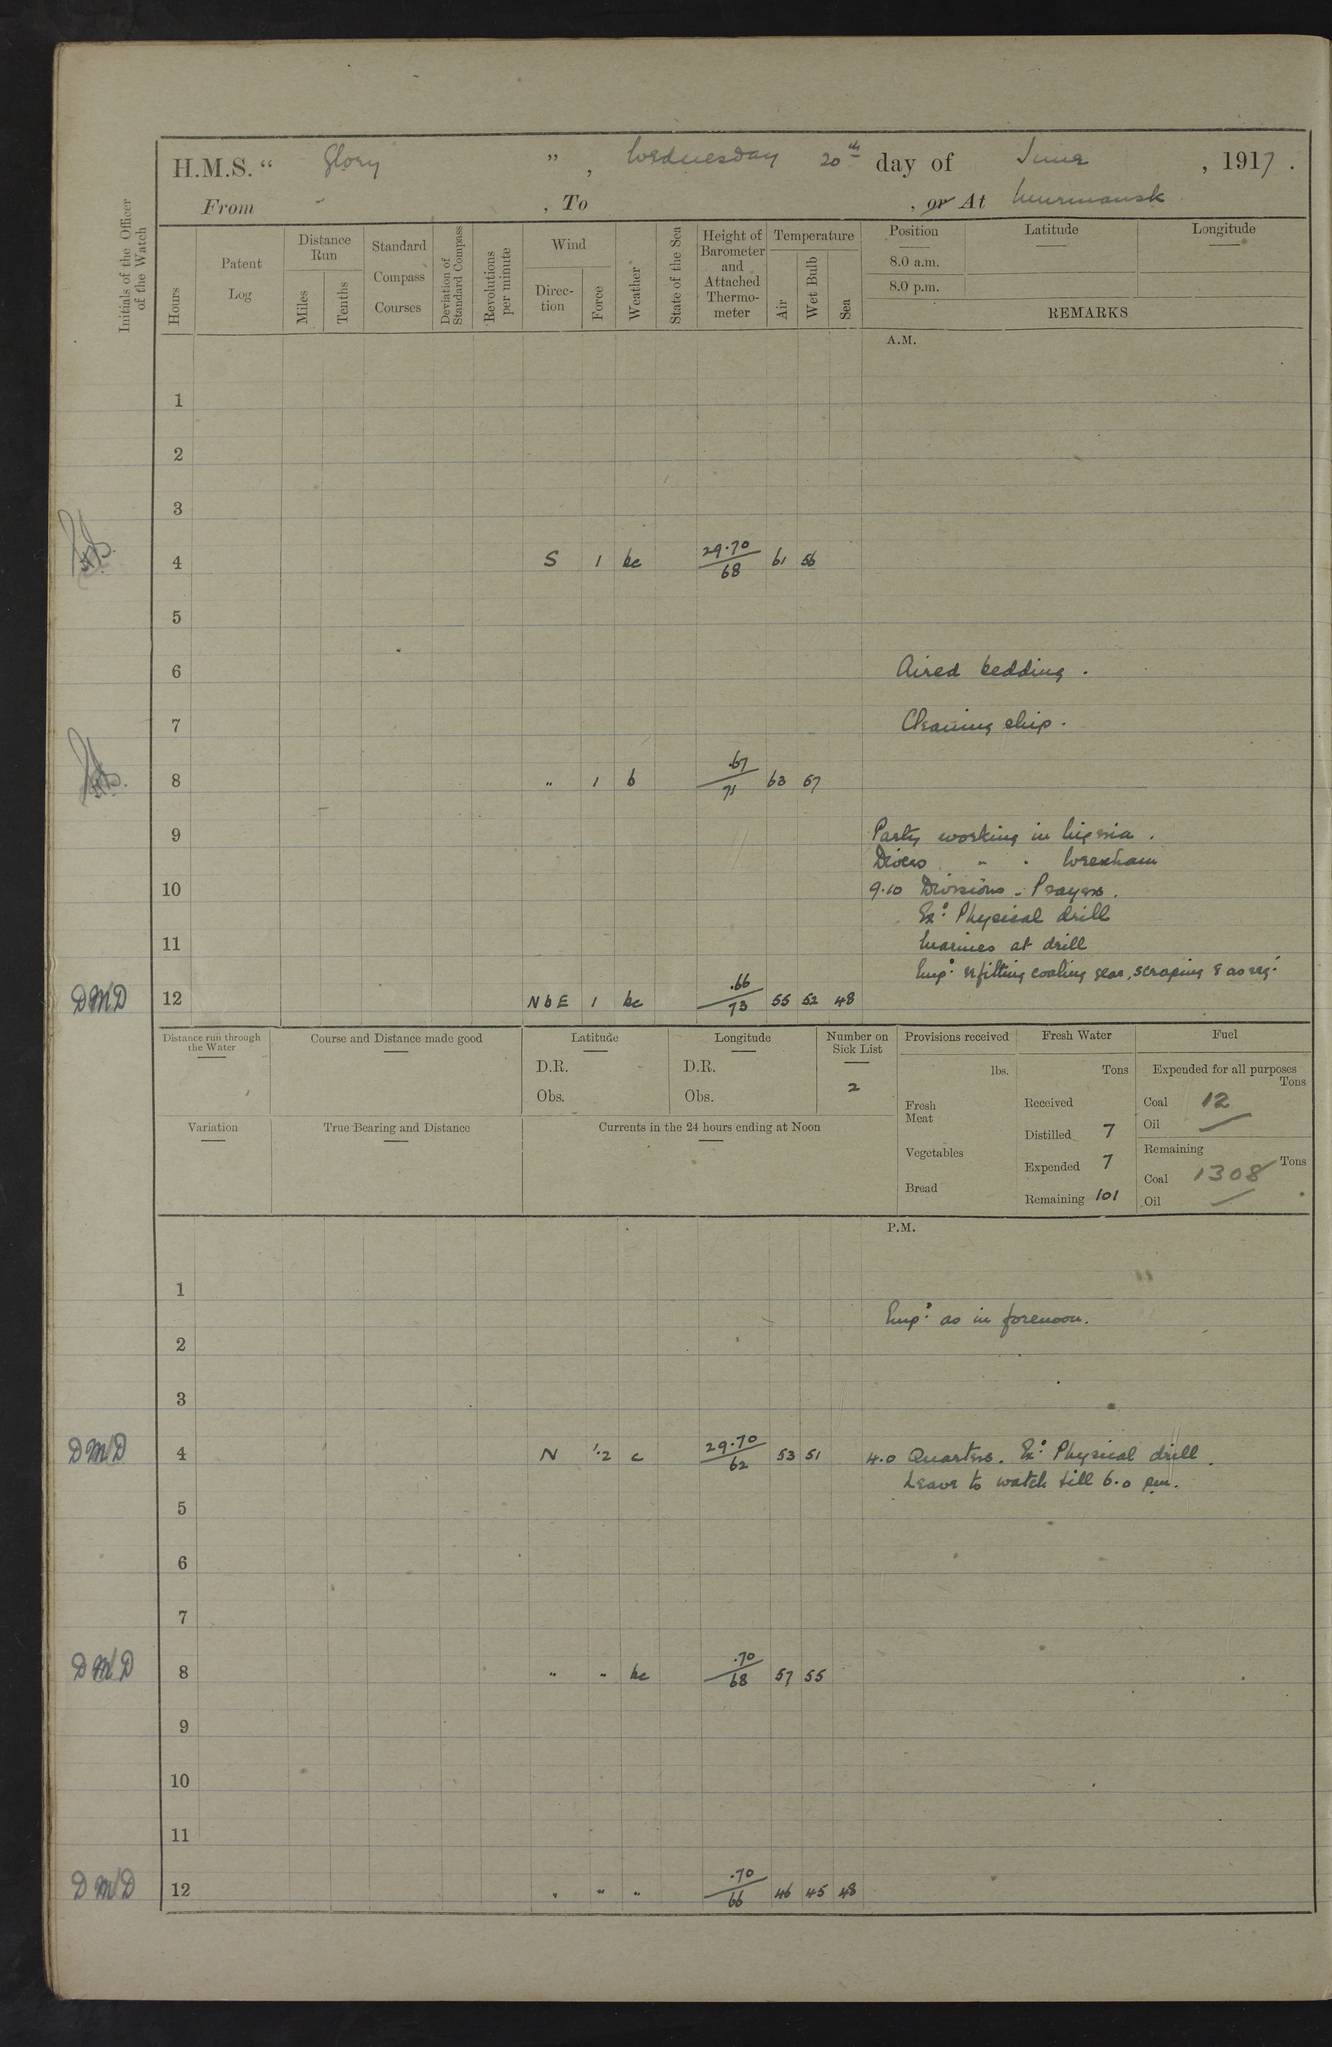 H.M.S. “ Glory ”, Wednesday 20th day of June, 1917.
From , To , or At Murmansk
Initials of the Officer of the Watch
Hours
Patent Log
Distance Run
Miles
Tenths
Standard Compass Courses
Deviation of Standard Compass
Revolutions per minute
Wind
Direction
Force
Weather
State of the Sea
Height of Barometer and Attached Thermometer
Temperature
Air
Wet Bulb
Sea
Position
Latitude
Longitude
8.0 a.m.
8.0 p.m.
REMARKS
A.M.
1
2
3
4 S 1 bc 29.70/68 61 56
5
6 Aired bedding.
7 Cleaning ship.
8 " 1 b .67/71 63 57
9 Party working in Nigeria.
Divers " " Wrexham
10 9.10 Divisions - Prayers.
Exd: Physical drill
11 Marines at drill
Empd: refitting coaling gear, scraping & as req:
DMD 12 NbE 1 bc .66/73 55 52 48
Distance run through the Water
Course and Distance made good
Latitude
D.R.
Obs.
Longitude
D.R.
Obs.
Number on Sick List
2
Provisions received
lbs.
Fresh Meat
Vegetables
Bread
Fresh Water
Tons
Received
Distilled 7
Expended 7
Remaining 101
Fuel
Expended for all purposes
Tons
Coal 12
Oil —
Remaining
Tons
Coal 1308
Oil —
Variation
True Bearing and Distance
Currents in the 24 hours ending at Noon
P.M.
1
Empd: as in forenoon.
2
3
DMD 4 N 1.2 c 29.70/62 53 51 4.0 Quarters. Exd: Physical drill.
Leave to watch till 6.0 pm.
5
6
7
DMD 8 " " bc .70/68 57 55
9
10
11
DMD 12 " " " .70/66 46 45 48